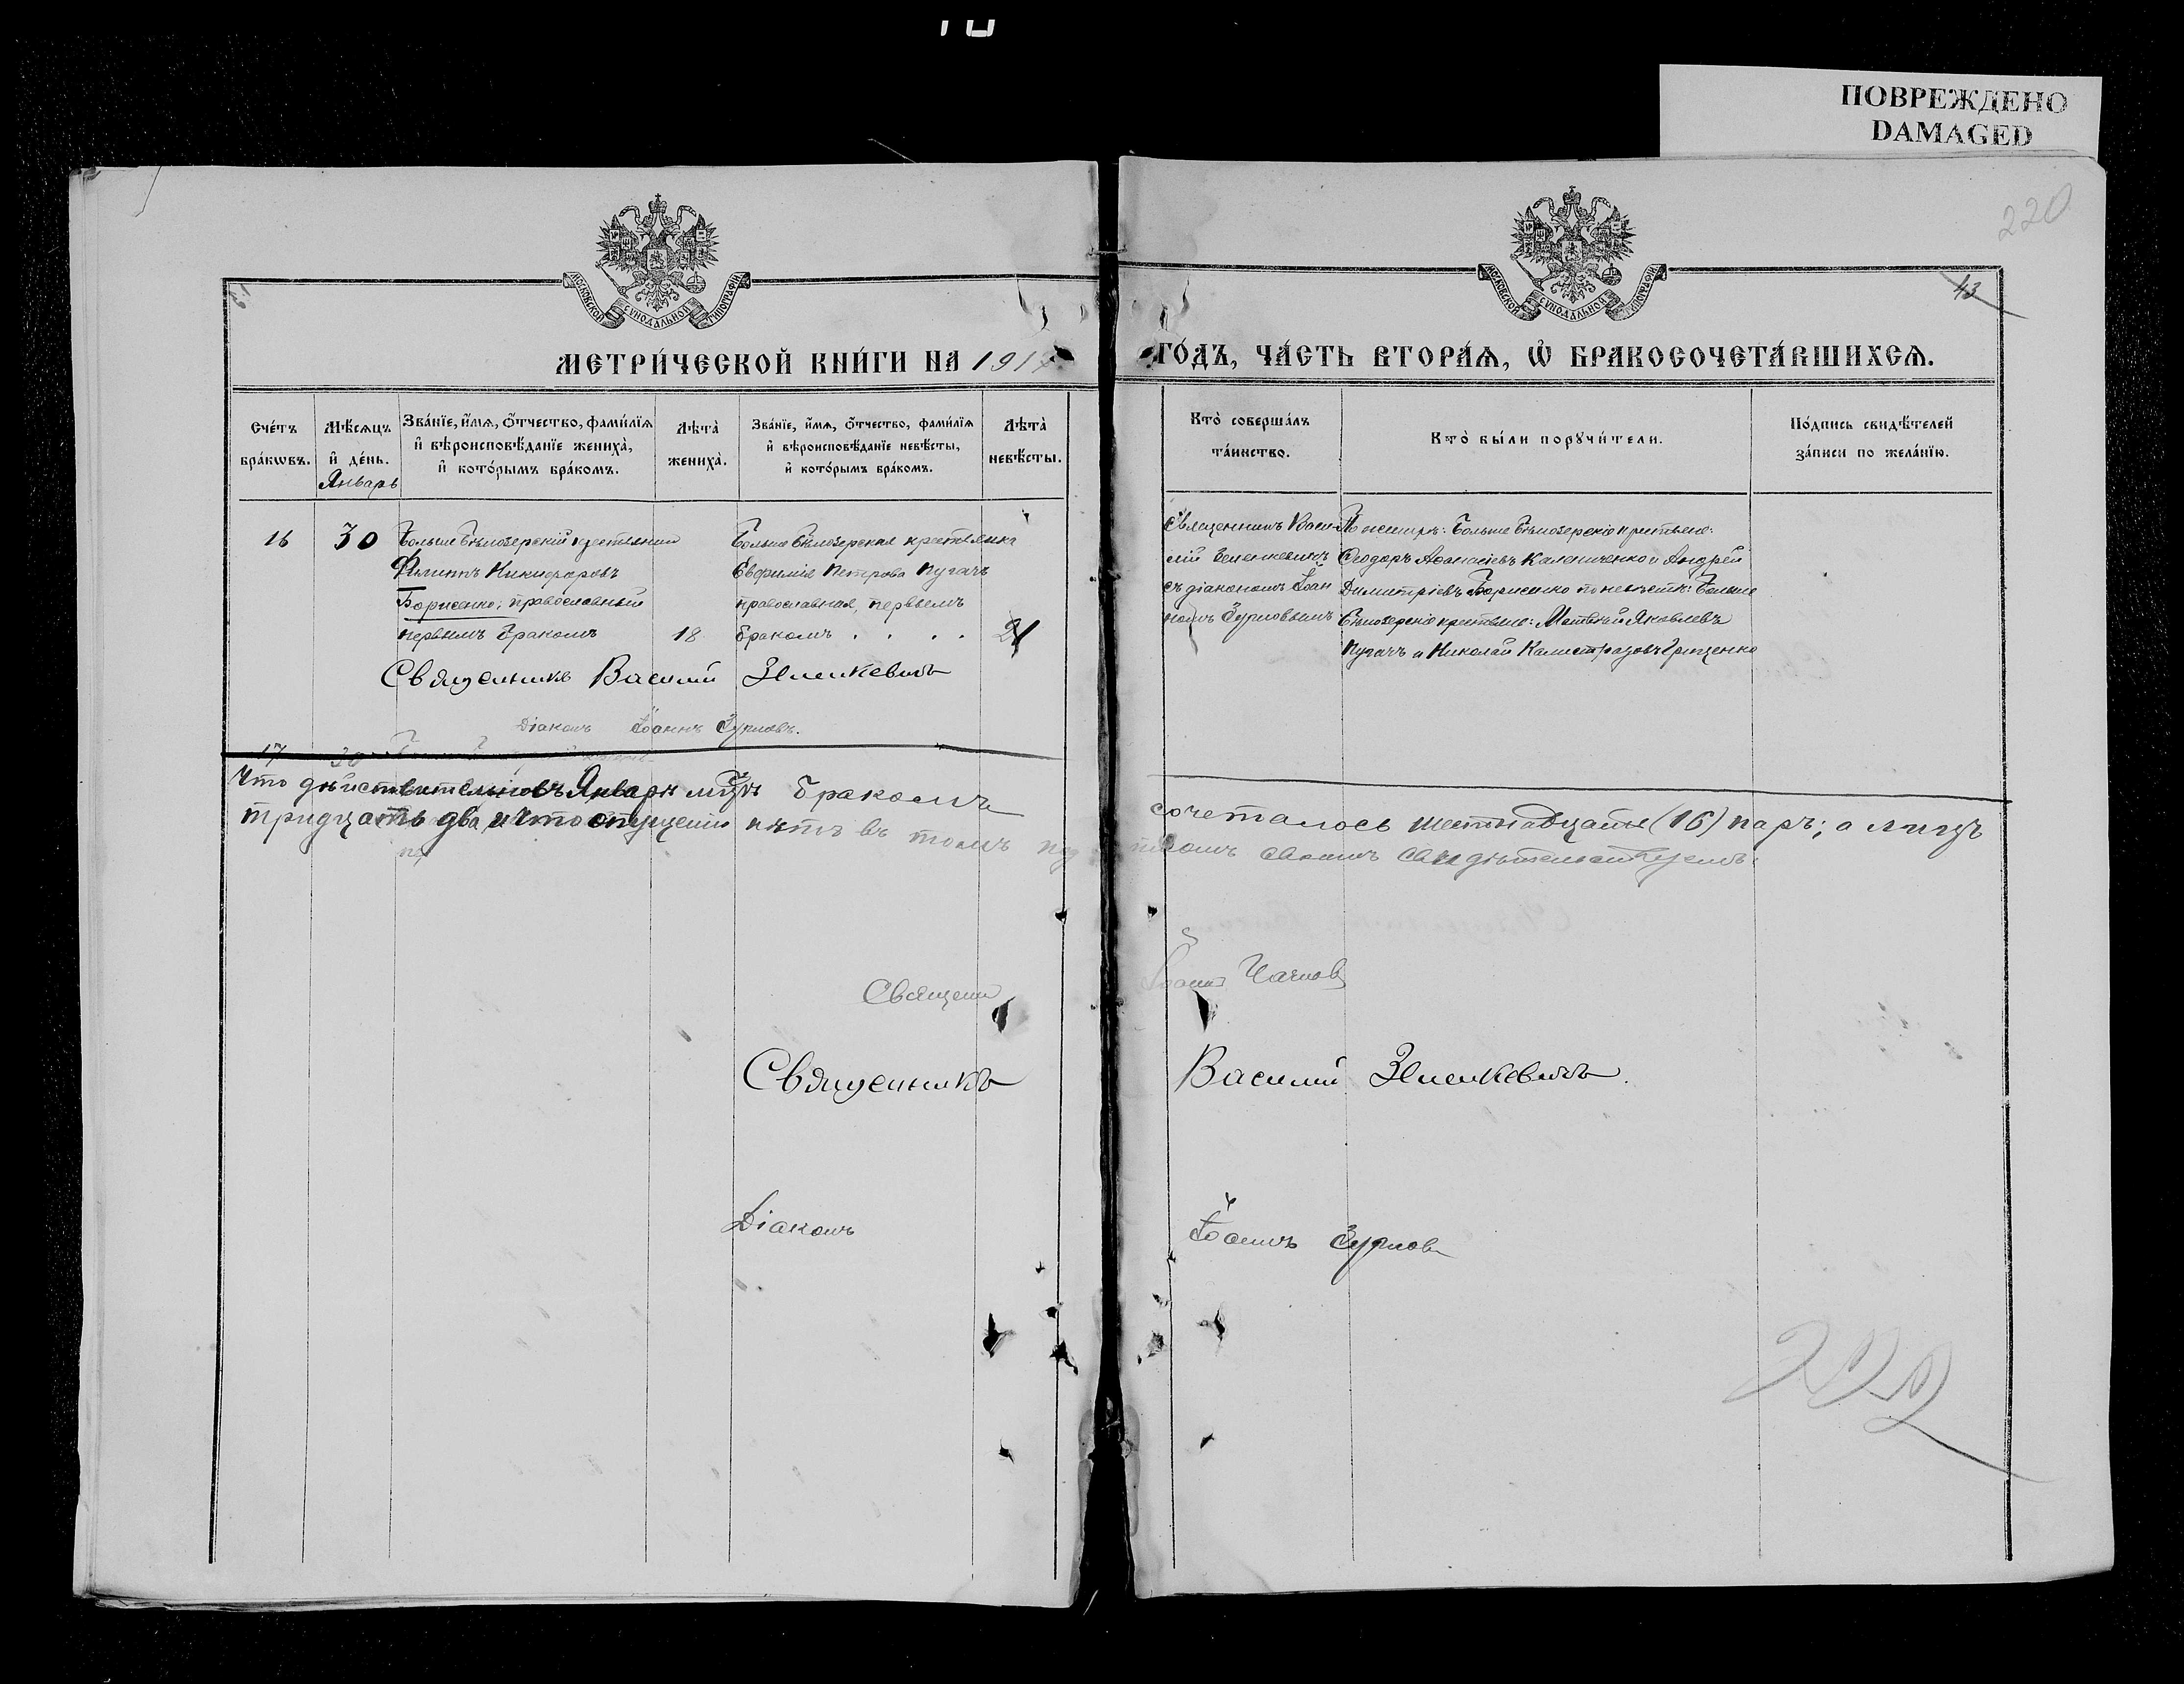 ПОВРЕЖДЕНО
DAMAGED
220
МОСКОВСКОЙ СѴНОДАЛЬНОЙ ТИПОГРАФІИ
МОСКОВСКОЙ СѴНОДАЛЬНОЙ ТИПОГРАФІИ
43
МЕТРИ́ЧЕСКОЙ КНИ́ГИ НА 1917
ГО́ДЪ, ЧА́СТЬ ВТОРА́Ѧ, Ѽ БРАКОСОЧЕТА́ВШИХСѦ.
Сче́тъ
бра́кѡвъ.
Мѣ́сѧцъ
и҆ де́нь.
Январь
Зва́нїе, и҆́мѧ, ѻ҆́тчество, фами́лїѧ
и҆ вѣроисповѣ́данїе жениха̀,
и҆ кото́рымъ бра́комъ.
Лѣта̀
жениха̀.
Зва́нїе, и҆́мѧ, ѻ҆́тчество, фами́лїѧ
и҆ вѣроисповѣ́данїе невѣ́сты,
и҆ кото́рымъ бра́комъ.
Лѣта̀
невѣ́сты.
Кто̀ соверша́лъ
та́инство.
Кто̀ бы́ли порꙋчи́тели.
По́дпись свидѣ́телей
за́писи по жела́нїю.
16
30
Больше Бѣлозерскій крестьянин
Филиппъ Никифоровъ
Борисенко, православный
первымъ бракомъ
18
Больше Бѣлозерская крестьянка
Евфимія Петрова Пугачъ
православная, первымъ
бракомъ . . . .
21
Священникъ Васи-
лій Зеленкевичъ
съ діакономъ Іоан
номъ Зурновымъ
По женихѣ: Больше Бѣлозерскіе крестьяне:
Ѳеодоръ Аѳанасіевъ Калениченко и Андрей
Димитріевъ Борисенко по невѣстѣ: Больше
Бѣлозерскіе крестьяне: Матвѣй Яковлевъ
Пугачъ и Николай Калистратовъ Грищенко
Священникъ Василій Зеленкевичъ
Діаконъ Іоаннъ Зурновъ.
17 30
Что дѣйствительно въ Январѣ мѣсяцѣ бракомъ сочеталось шестнадцать (16) паръ; а лицъ
тридцать два, и что опущенія нѣтъ въ томъ подписомъ своимъ свидѣтельствуемъ:
Священн Іоаннъ Чачков
Священникъ Василій Зеленкевичъ.
Діаконъ Іоаннъ Зурнов